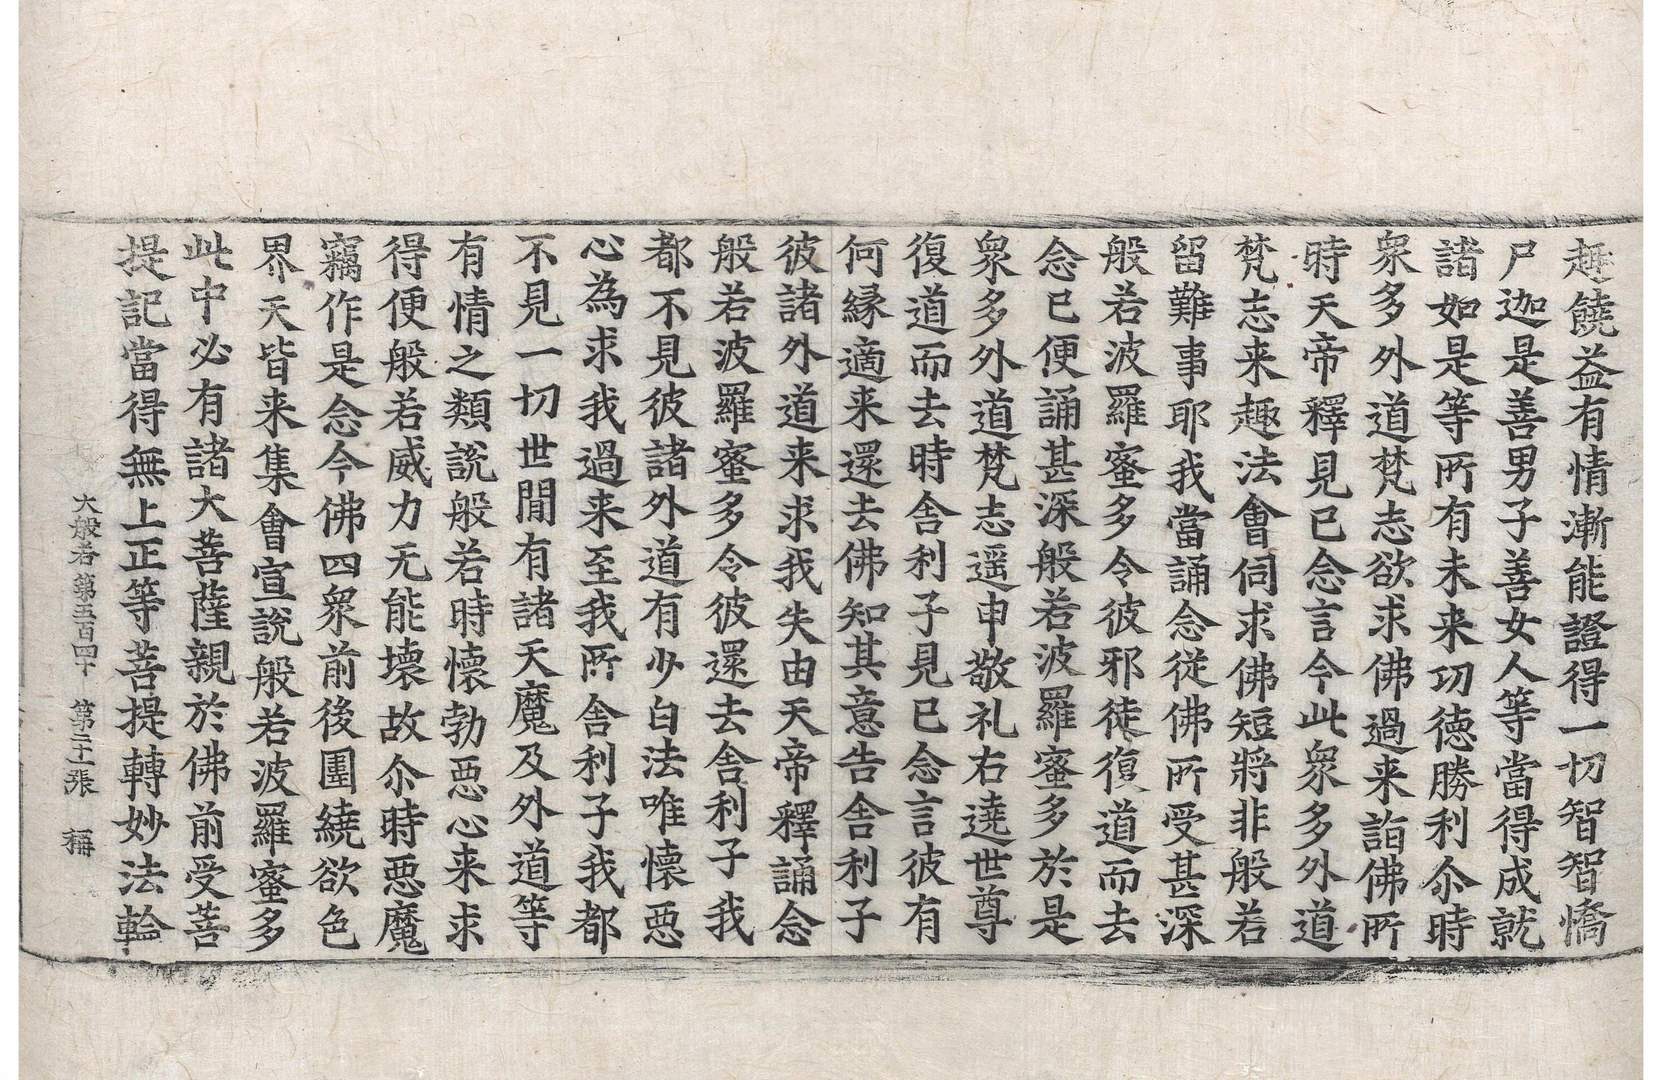 趣饒益有情漸能證得一切智智憍
尸迦是善男子善女人等當得成就
諸如是等所有未来功德勝利尒時
衆多外道梵志欲求佛過来詣佛所
時天帝釋見已念言今此衆多外道
梵志来趣法會伺求佛短將非般若
留難事耶我當誦念從佛所受甚深
般若波羅蜜多令彼邪徒復道而去
念已便誦甚深般若波羅蜜多於是
衆多外道梵志遥申敬礼右遶世尊
復道而去時舍利子見已念言彼有
何緣適来還去佛知其意告舍利子
彼諸外道来求我失由天帝釋誦念
般若波羅蜜多令彼還去舍利子我
都不見彼諸外道有少白法唯懷惡
心為求我過来至我所舍利子我都
不見一切世間有諸天魔及外道等
有情之類說般若時懷勃惡心来求
得便般若威力无能壞故尒時惡魔
竊作是念今佛四衆前後圍繞欲色
界天皆来集會宣說般若波羅蜜多
此中必有諸大菩薩親於佛前受菩
提記當得無上正等菩提轉妙法輪
大般若第五百四十 第二十一張 稱